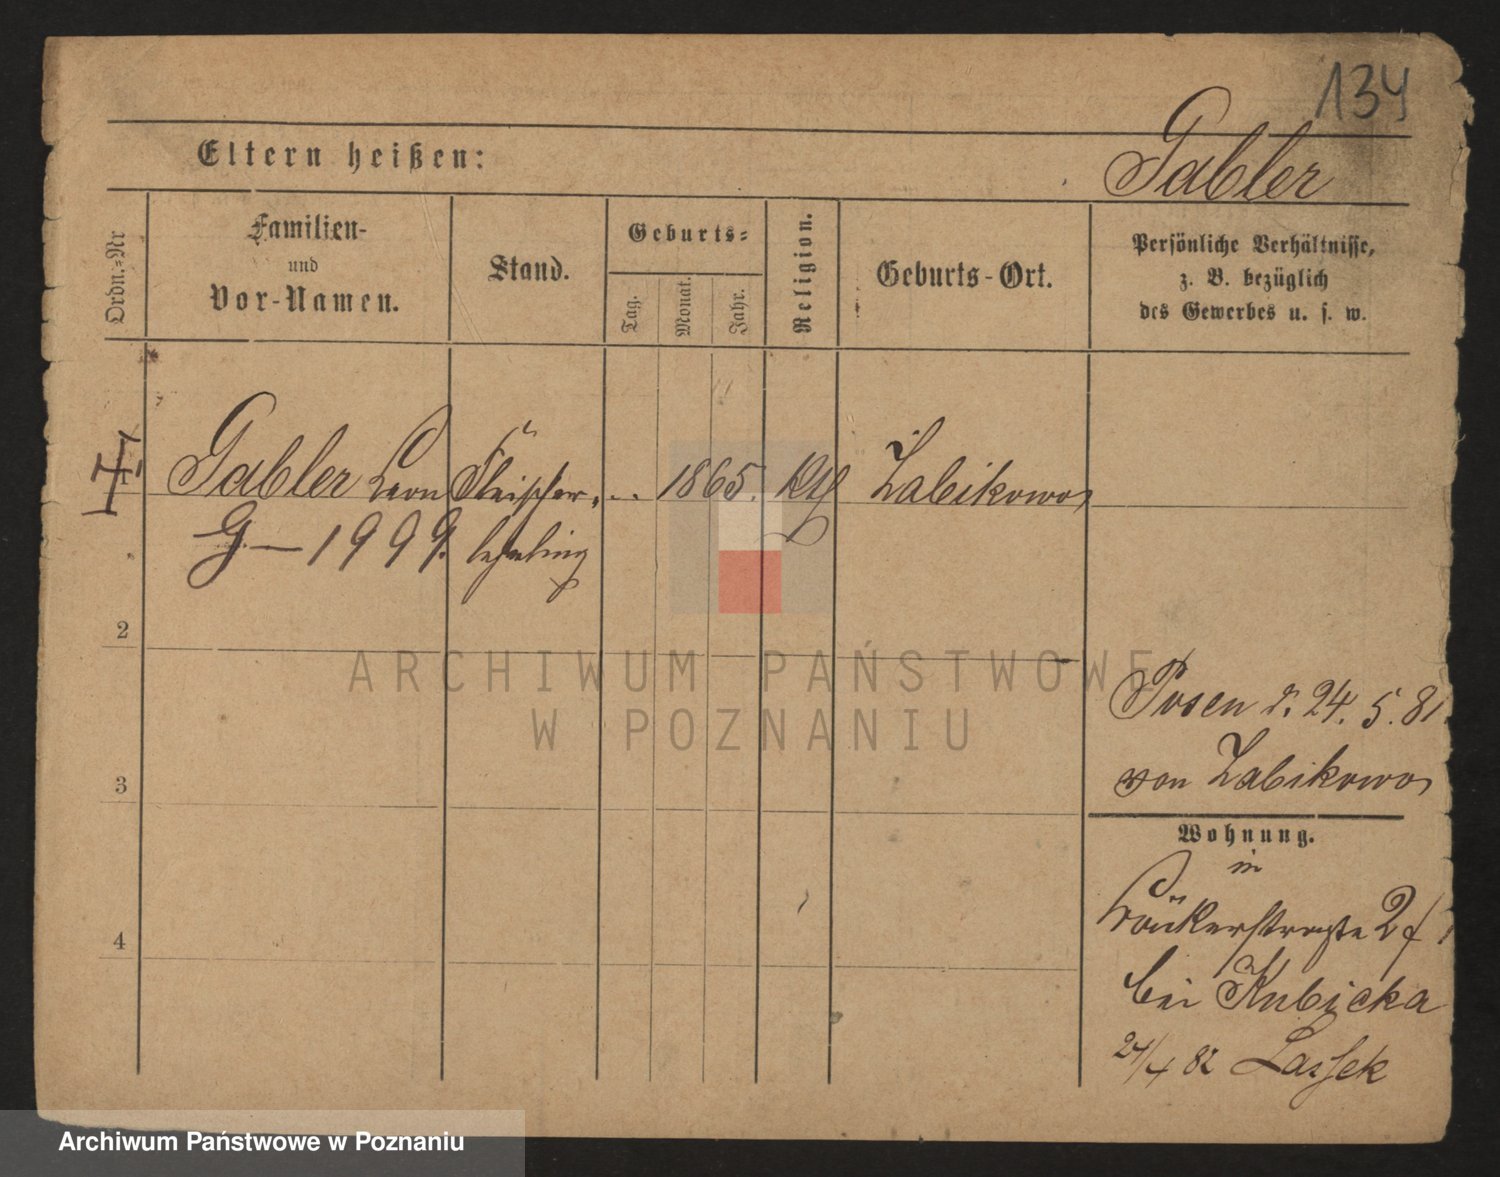 134
Eltern heißen:
Gabler
Ordn.-Nr
Familien-
und
Vor-Namen.
Stand.
Geburts-
Tag.
Monat.
Jahr.
Religion.
Geburts-Ort.
Persönliche Verhältnisse,
z. B. bezüglich
des Gewerbes u. s. w.
Gabler Leon Fleischer- 1865. Kth Zabikowo
G - 1999. lehrling
2
ARCHIWUM PAŃSTWOWE
W POZNANIU
Posen d. 24. 5. 81
von Zabikowo
3
Wohnung.
in
2
4
bei Kubicka
24/4 82 Lassek
Archiwum Państwowe w Poznaniu